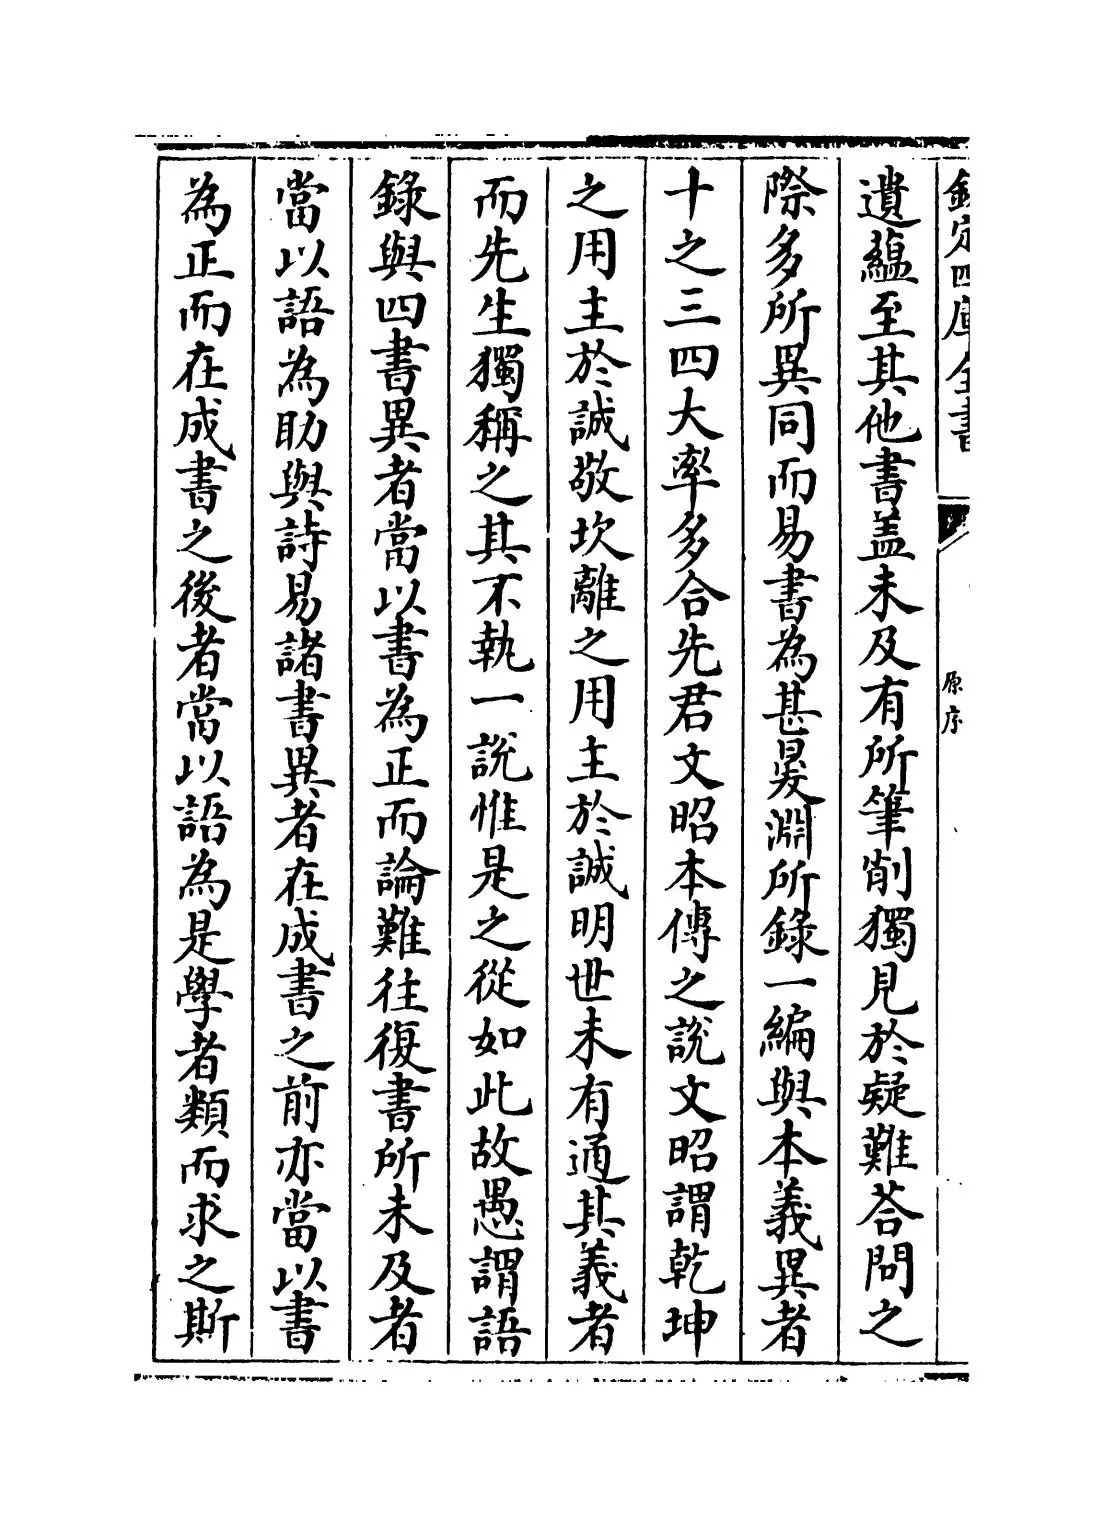 欽定四庫全書
原序
遺藴至其他書盖未及有所筆削獨見於疑難荅問之
際多所異同而易書為甚㬊淵所錄一編與本義異者
十之三四大率多合先君文昭本傳之說文昭謂乾坤
之用主於誠敬坎離之用主於誠明世未有通其義者
而先生獨稱之其不執一說惟是之從如此故愚謂語
錄與四書異者當以書為正而論難往復書所未及者
當以語為助與詩易諸書異者在成書之前亦當以書
為正而在成書之後者當以語為是學者類而求之斯